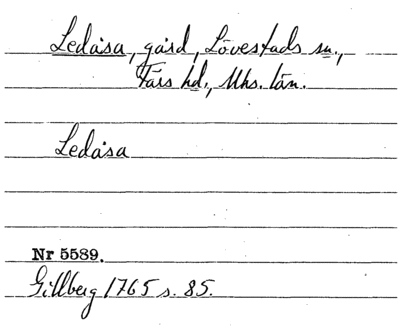 Ledåsa, gård, Lövestads sn.,
Färs hd., Mhs. län.
Ledåsa
Nr 5589.
Gillberg 1765 s. 85.